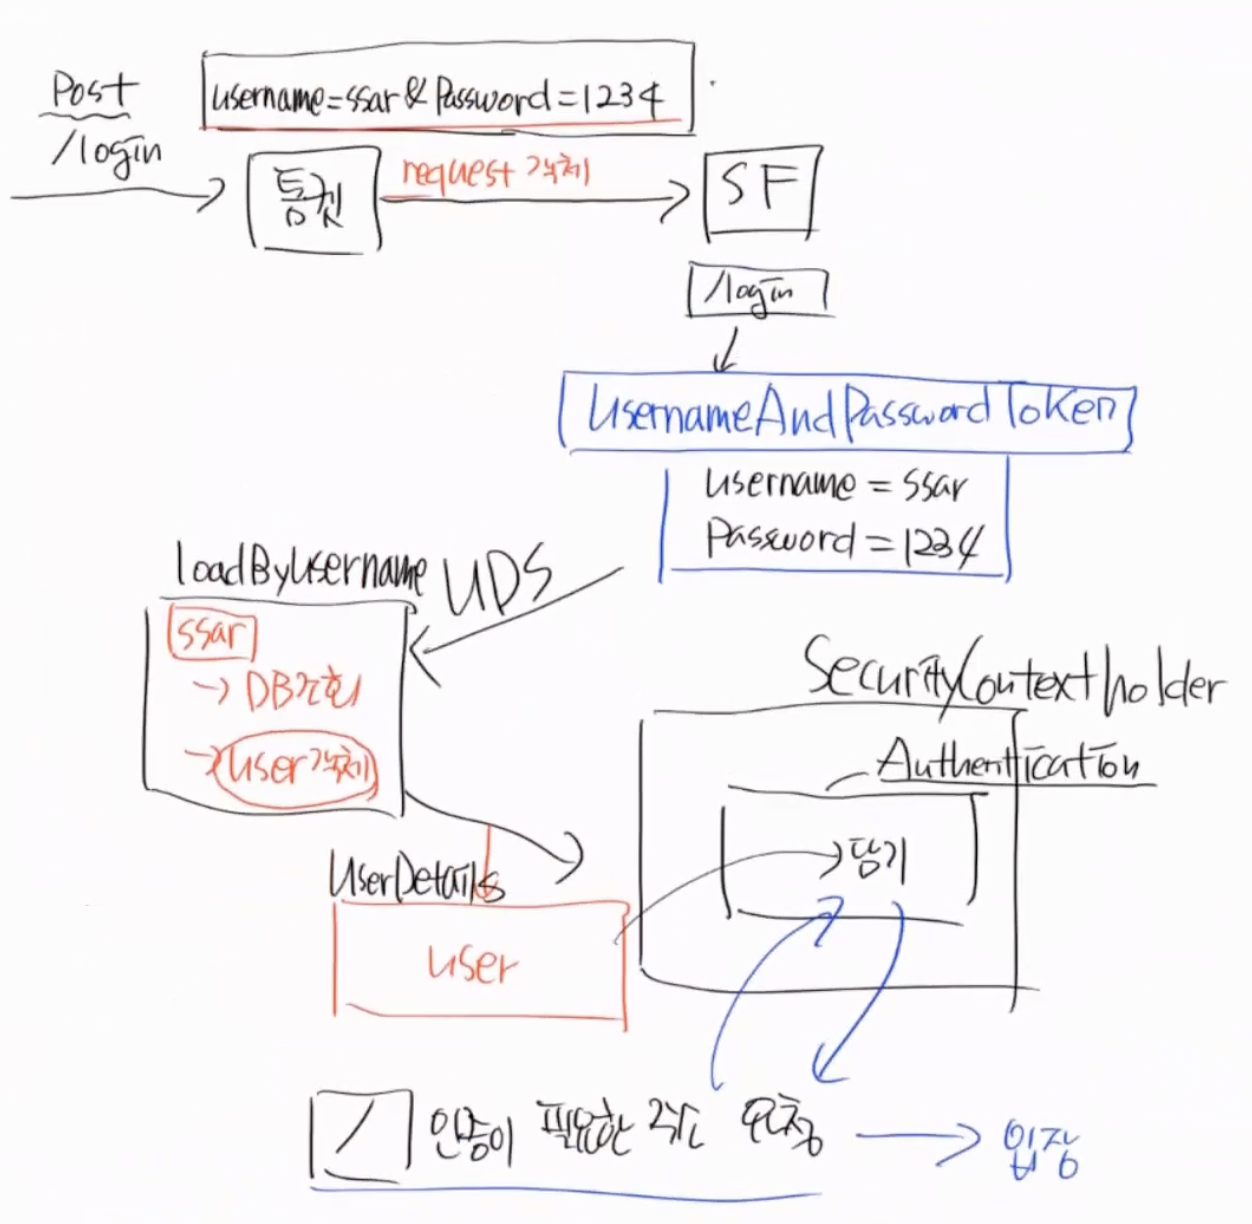 Post
/login
username=ssar & Password=1234
톰캣
request 객체
SF
/login
UsernameAndPasswordToken
username = ssar
Password = 1234
loadByUsername
UDS
ssar
→ DB조회
→ user객체
UserDetails
user
SecurityContextHolder
Authentication
담기
/ 인증이 필요한 주소 요청 → 입장